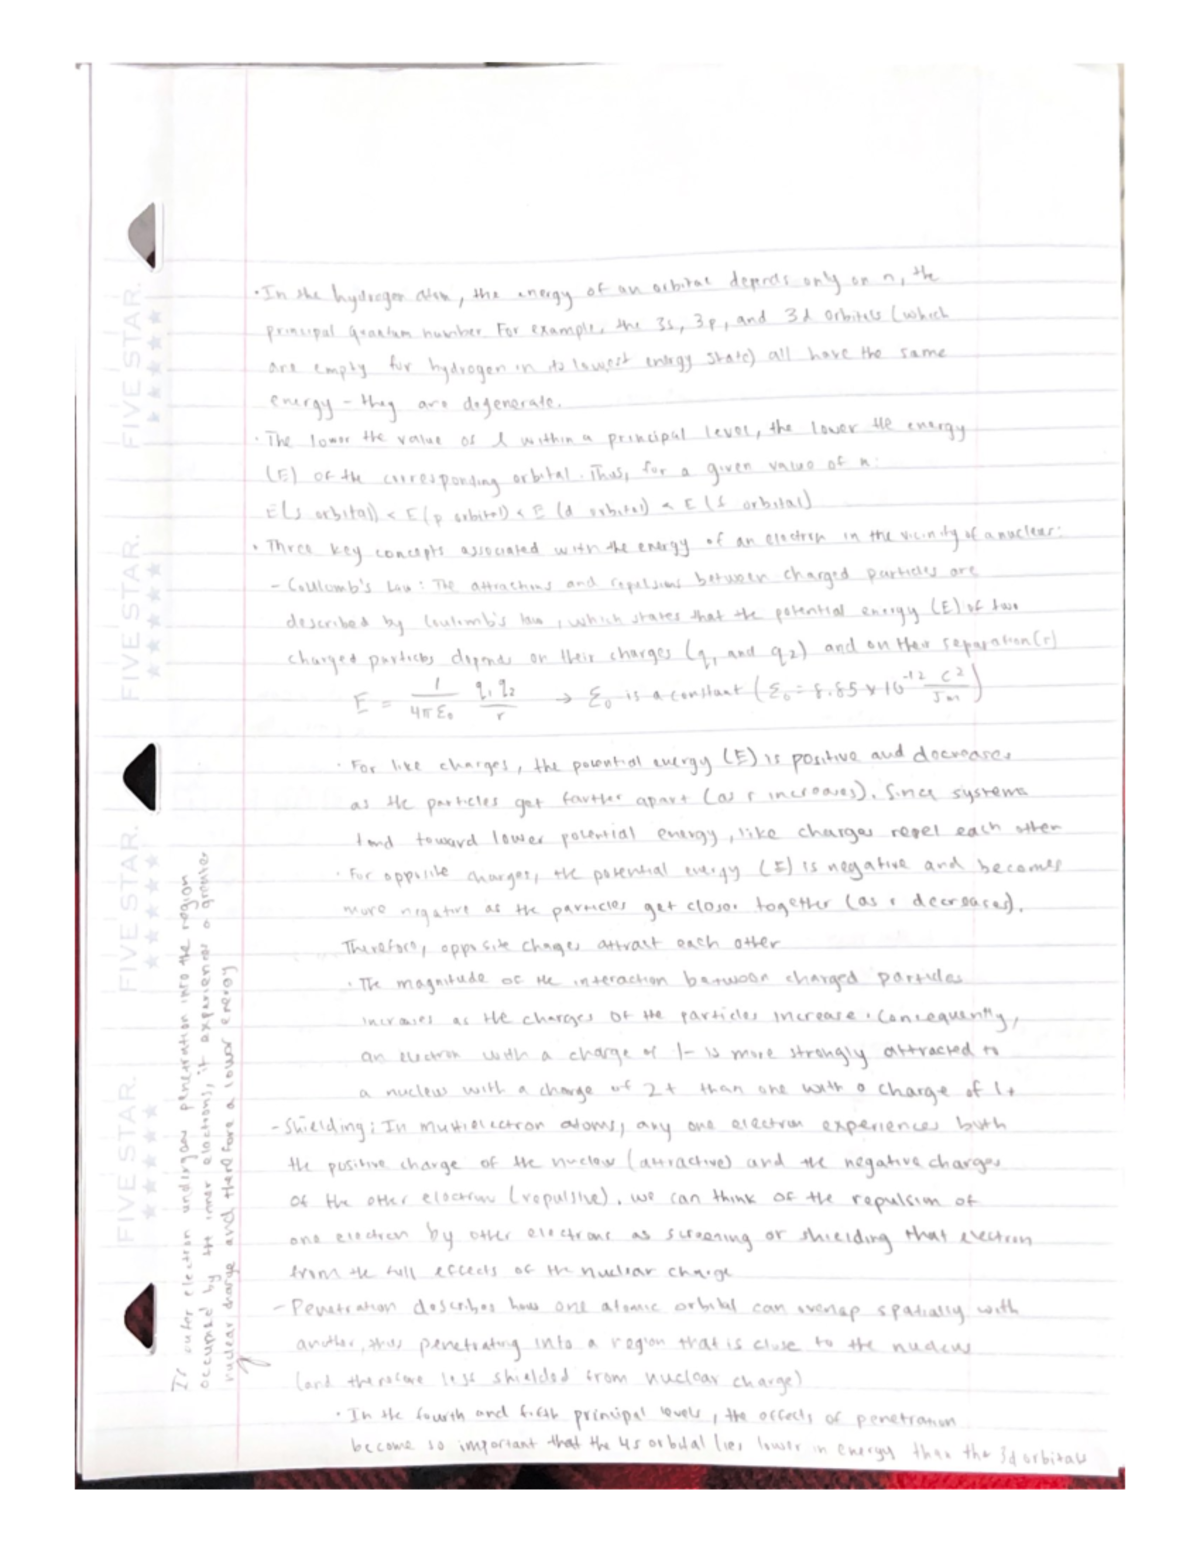 · In the hydrogen atom, the energy of an orbital depends only on n, the
principal quantum number. For example, the 3s, 3p, and 3d orbitals (which
are empty for hydrogen in its lowest energy state) all have the same
energy - they are degenerate.
· The lower the value of l within a principal level, the lower the energy
(E) of the corresponding orbital. Thus, for a given value of n:
E(s orbital) < E(p orbital) < E (d orbital) < E (f orbital)
· Three key concepts associated with the energy of an electron in the vicinity of a nucleus:
- Coulomb's Law: The attractions and repulsions between charged particles are
described by Coulomb's law, which states that the potential energy (E) of two
charged particles depends on their charges (q₁ and q₂) and on their separation (r)
E = 1/4πε₀ q₁q₂/r → ε₀ is a constant (ε₀ = 8.85 x 10⁻¹² C²/Jm)
· For like charges, the potential energy (E) is positive and decreases
as the particles get farther apart (as r increases). Since systems
tend toward lower potential energy, like charges repel each other
· For opposite charges, the potential energy (E) is negative and becomes
more negative as the particles get closer together (as r decreases).
Therefore, opposite charges attract each other
· The magnitude of the interaction between charged particles
increases as the charges of the particles increase. Consequently,
an electron with a charge of 1- is more strongly attracted to
a nucleus with a charge of 2+ than one with a charge of 1+
- Shielding: In multielectron atoms, any one electron experiences both
the positive charge of the nucleus (attractive) and the negative charges
of the other electron (repulsive). we can think of the repulsion of
one electron by other electrons as screening or shielding that electron
from the full effects of the nuclear charge
- Penetration describes how one atomic orbital can overlap spatially with
another, thus penetrating into a region that is close to the nucleus
(and therefore less shielded from nuclear charge)
· In the fourth and fifth principal levels, the effects of penetration
become so important that the 4s orbital lies lower in energy than the 3d orbitals
If outer electron undergoes penetration into the region
occupied by the inner electrons, it experiences a greater
nuclear charge and therefore a lower energy
FIVE STAR.
FIVE STAR.
FIVE STAR.
FIVE STAR.